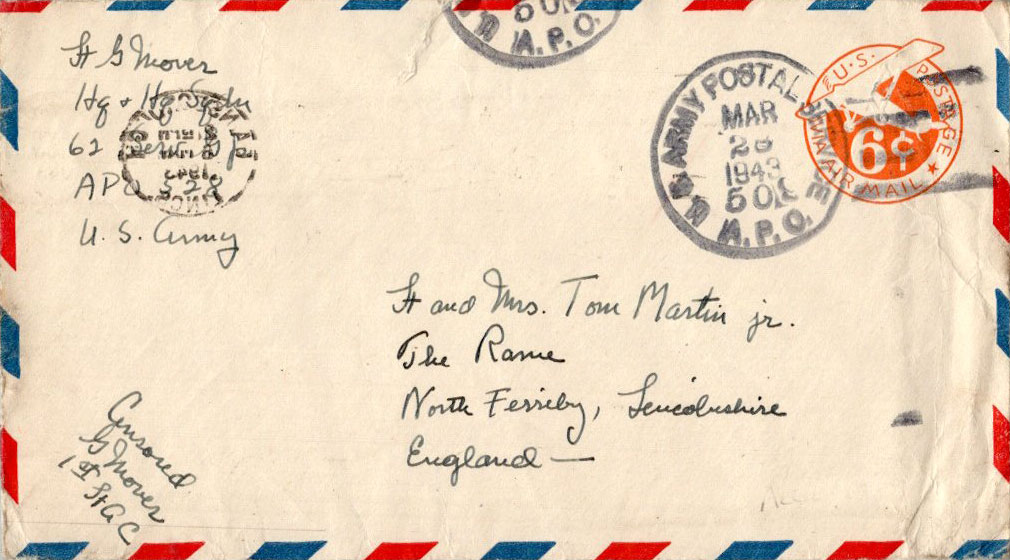 Lt G Mover
Hq + Hq Sqdn
62 Serv Gp
APO 528
U.S. Army
50
A.P.O.
U.S. ARMY POSTAL SERVICE
MAR
1943
A.P.O.
U.S. POSTAGE
6¢
VIA AIR MAIL
Lt and Mrs. Tom Martin jr.
The Rame
North Ferriby, Lincolnshire
England —
Censored
G Mover
1st Lt AC